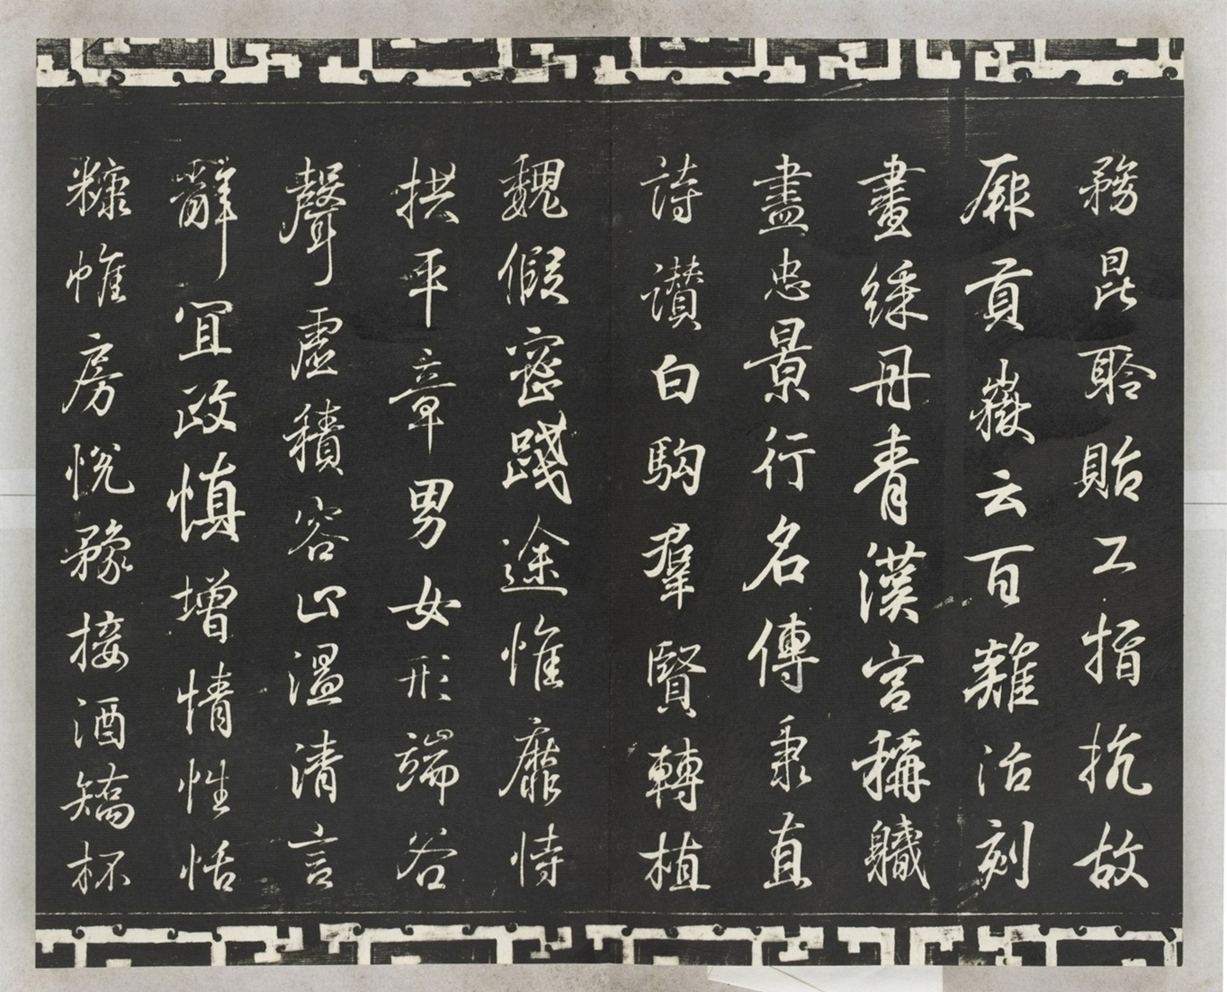 務昆聆貽工指抗故
厥貢嶽云百雞活刻
晝綵丹青漢宮稱職
盡忠景行名傳秉直
詩讚白駒羣賢轉植
魏假密踐途惟靡恃
拱平章男女形端谷
聲虛積容止溫清言
辭宜政慎增情性恬
糠帷房悅豫接酒矯杯